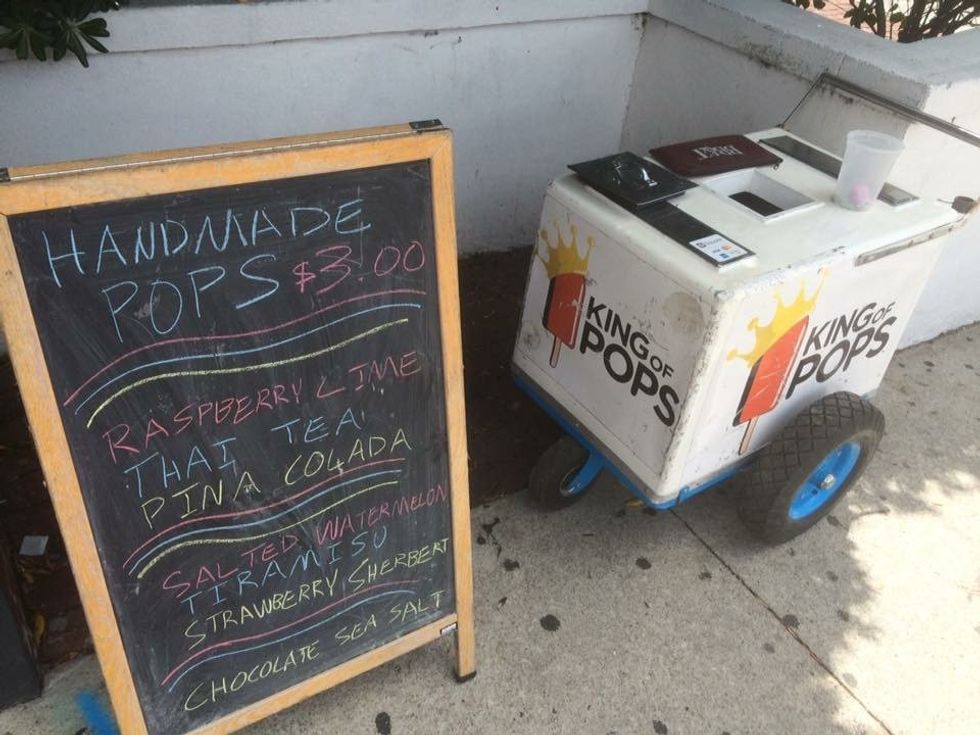 HANDMADE
POPS $3.00
RASPBERRY LIME
THAI TEA
PINA COLADA
SALTED WATERMELON
TIRAMISU
STRAWBERRY SHERBERT
CHOCOLATE SEA SALT
KING OF
POPS
KING OF
POPS